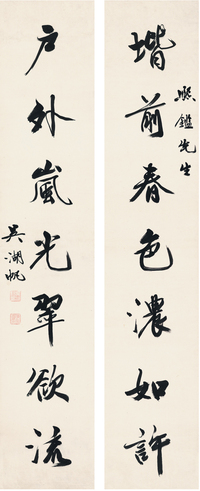 熙鑑先生
堦前春色濃如許
戶外嵐光翠欲流
吳湖帆